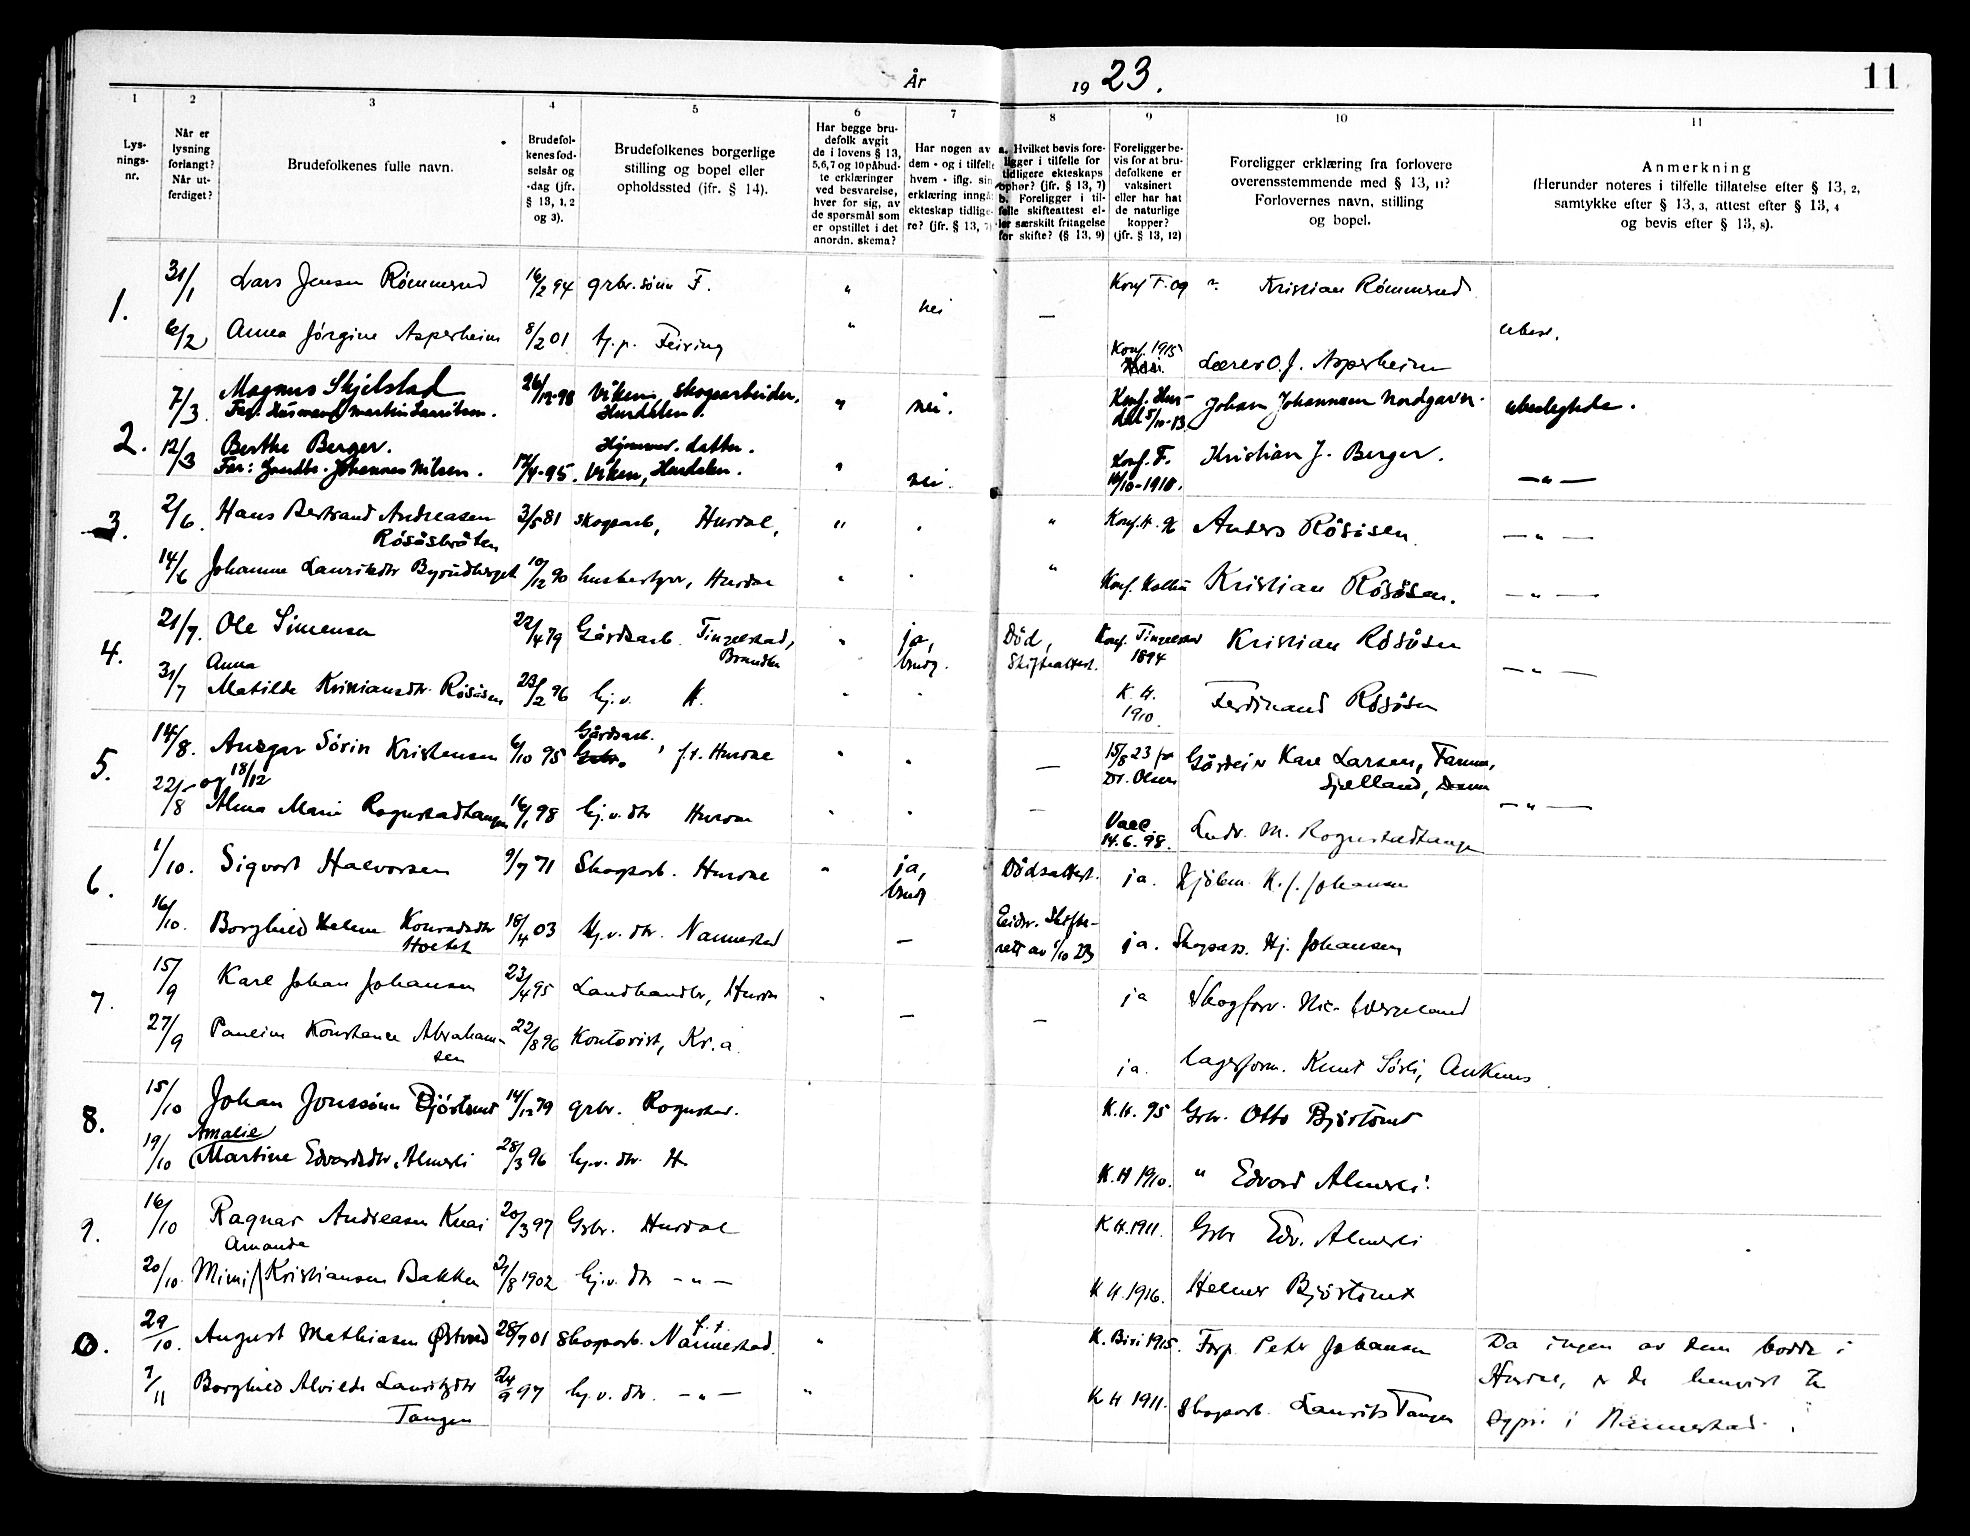 År 1923. 11
1 2 3 4 5 6 7 8 9 10 11
Lys-
nings-
nr.
Når er
lysning
forlangt?
Når ut-
ferdiget?
Brudefolkenes fulle navn.
Brudefol-
kenes fød-
selsår og
-dag (jfr.
§ 13, 1, 2
og 3).
Brudefolkenes borgerlige
stilling og bopel eller
opholdssted (jfr. § 14).
Har begge bru-
defolk avgit
de i lovens § 13,
5,6,7 og 10 påbud-
te erklæringer
ved besvarelse,
hver for sig, av
de spørsmål som
er opstillet i det
anordn. skema?
Har nogen av
dem - og i tilfelle
hvem - iflg. sin
erklæring inngå
ekteskap tidlige-
re? (jfr. § 13, 7)
a. Hvilket bevis fore-
ligger i tilfelle for
tidligere ekteskaps
ophør? (jfr. § 13, 7)
b. Foreligger i til-
felle skifteattest el-
ler særskilt fritagelse
for skifte? (§ 13, 9)
Foreligger be-
vis for at bru-
defolkene er
vaksinert
eller har hat
de naturlige
kopper?
(jfr. § 13, 12)
Foreligger erklæring fra forlovere
overensstemmende med § 13, 11?
Forlovernes navn, stilling
og bopel.
Anmerkning
(Herunder noteres i tilfelle tillatelse efter § 13, 2,
samtykke efter § 13, 3, attest efter § 13, 4
og bevis efter § 13, 8).
1. 31/1 Lars Jensen Römmerud 16/2 94 grbr. sönn F. " nei — Konf F. 09 Kristian Römmerud
6/2 Anna Jörgine Asperheim 8/2 01 tj.p. Feiring " Konf. 1915 Lærer O. J. Asperheim
2. 7/3 Magnus Skjelstad 26/12-98 Viken, Skogsarbeider, " nei. Konf. Hur- Johan Johannesen Nordgarn. ubeslegtede.
Far: Husmann Martin Lauritsen. Hurdalen. dal 5/10-13.
12/3 Berthe Berger. Hjemmev. datter. Konf. F. Kristian J. Berger.
Far: Gaardbr. Johannes Nilsen. 17/4-95. Viken, Hurdalen. " nei. 16/10-1910. — " —
3. 2/6. Hans Bertrand Andreasen 3/5 81 skogsarb, Hurdal, " Konf. H. 96 Anders Rösåsen — " —
Rösåsbråten
14/6 Johanne Lauritsdtr Byrudberget 10/12 90 husbestyr, Hurdal Kristian Rösåsen. — " —
4. 21/7. Ole Simensen 22/4 79 Gårdsarb. Tingelstad, ja, Död, Konf. Tingelstad Kristian Rösåsen
Brandbu brudg. Skifteattest. 1894 — " —
Anna
31/7 Matilde Kristiansdtr. Rösåsen 23/2 96 hj.v. H. K. H. Ferdinand Rösåsen
1910.
5. 14/8. Ansgar Sörin Kristensen 6/10 95 Gårdsarb. f.t. Hurdal — 15/8 23 fra Gårdeier Karl Larsen,
Dr. Olsen Sjælland,
22/8 og 18/12 Alma Marie Rognstadtangen 16/1 98 hj.v. dtr Hurdal — Vacc. 14.6.98. M. Rognstadtangen — " —
6. 1/10. Sigvart Halvorsen 9/7 71 Skogsarb. Hurdal " ja, brudg Dödsattest. ja. Kjöbm. K. J. Johansen
16/10. Borghild Helene Konradsdtr 18/4 03 hj.v. dtr. Nannestad — Eidsv. Skifte- ja. Hj. Johansen
rett av 1/10 23
7. 15/9 Karl Johan Johansen 23/4 95 Landhandler, Hurdal — — ja Skogforv. Nic.
27/9 Pauline Konstance Abraham- 22/8 96 Kontorist, Kr.a. ja. Lagerform. Knut Sörli,
sen
8. 15/10 Johan Jonssönn Björtomt 14/12 79 grbr. Rognstad. K. H. 95 Grbr. Otto Björtomt
Amalie
19/10 Martine Edvardsdtr. Almerli 28/3 96 hj.v. dtr. H K. H 1910. " Edvard Almerli.
9. 16/10 Ragnar Andreasen Knai 20/3 97 Grbr. Hurdal K H. 1911. Grbr Edv. Almerli
Amanda
20/10. Mimi Kristiansen Bakken 21/8 1902 hj.v. dtr — " — K H. 1916. Helmer Björtomt
10. 29/10. August Mathiasen Östvold 28/7 01 Skogsarb. f.t. Nannestad. " K. Biri 1915. Forp. Peter Johansen Da ingen av dem bodde i
7/11 Borghild Alvilde Lauritsdtr 24/9 97 hj.v. dtr. — " — " K H 1911. Skogsarb. Laurits Tangen Hurdal, er de henvist til
Tangen i Nannestad.